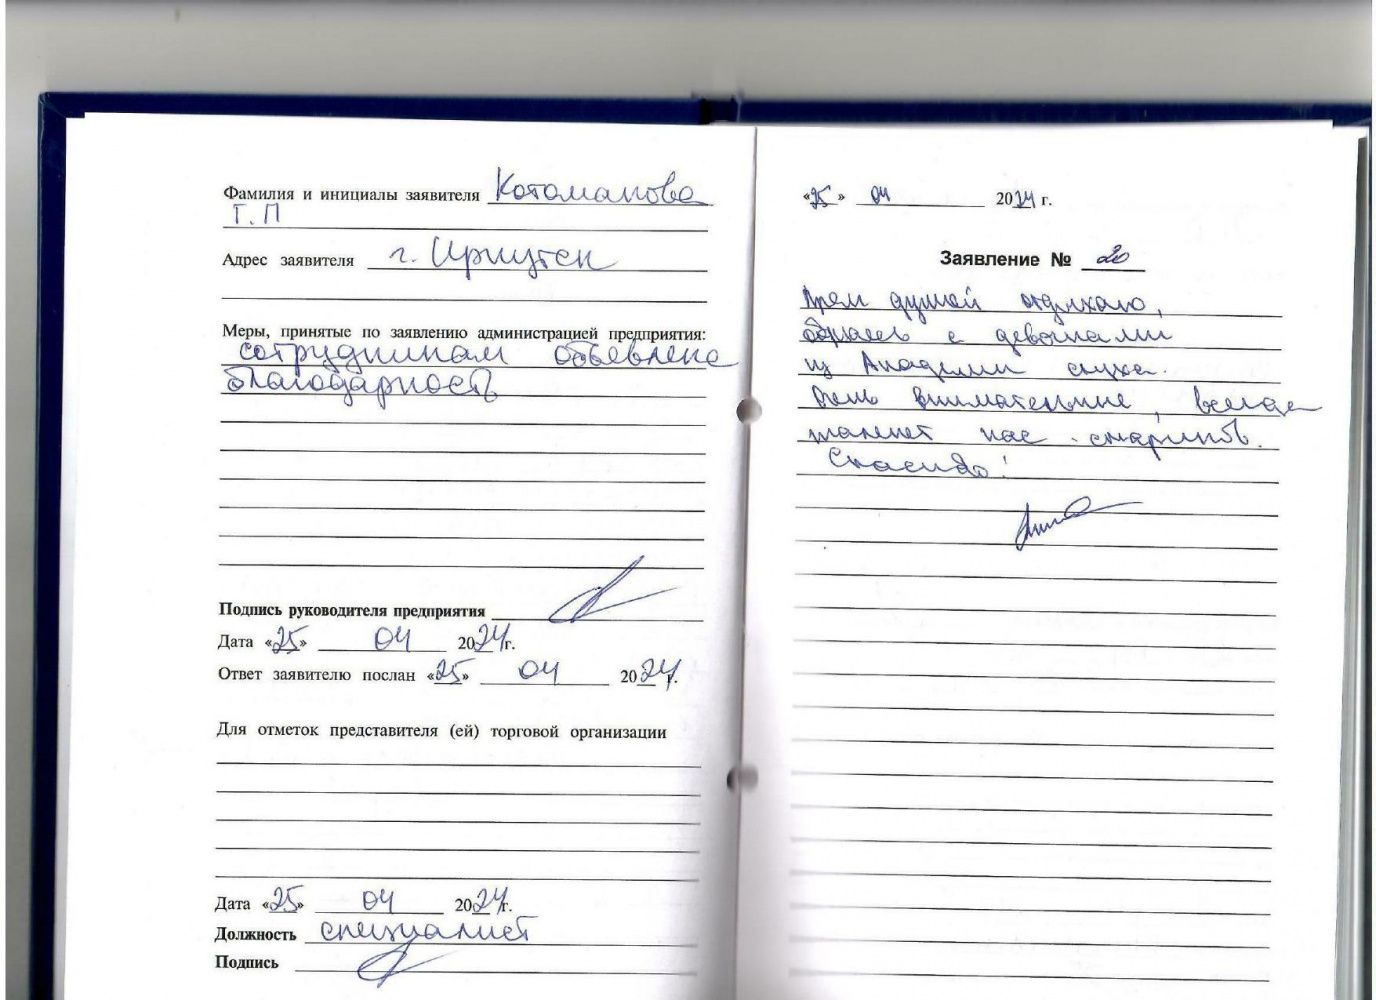 Фамилия и инициалы заявителя Котоманова
Т.П
Адрес заявителя г. Иркутск
Меры, принятые по заявлению администрацией предприятия:
сотрудникам объевлена
благодарность
Подпись руководителя предприятия
Дата «25» 04 2024г.
Ответ заявителю послан «25» 04 2024 г.
Для отметок представителя (ей) торговой организации
Дата «25» 04 2024г.
Должность специалист
Подпись
«25» 04 2024 г.
Заявление № 20
Прям душой отдыхаю,
общаясь с девочками
из Академии слуха.
Очень внимательные, всегда
нас стариков.
Спасибо!